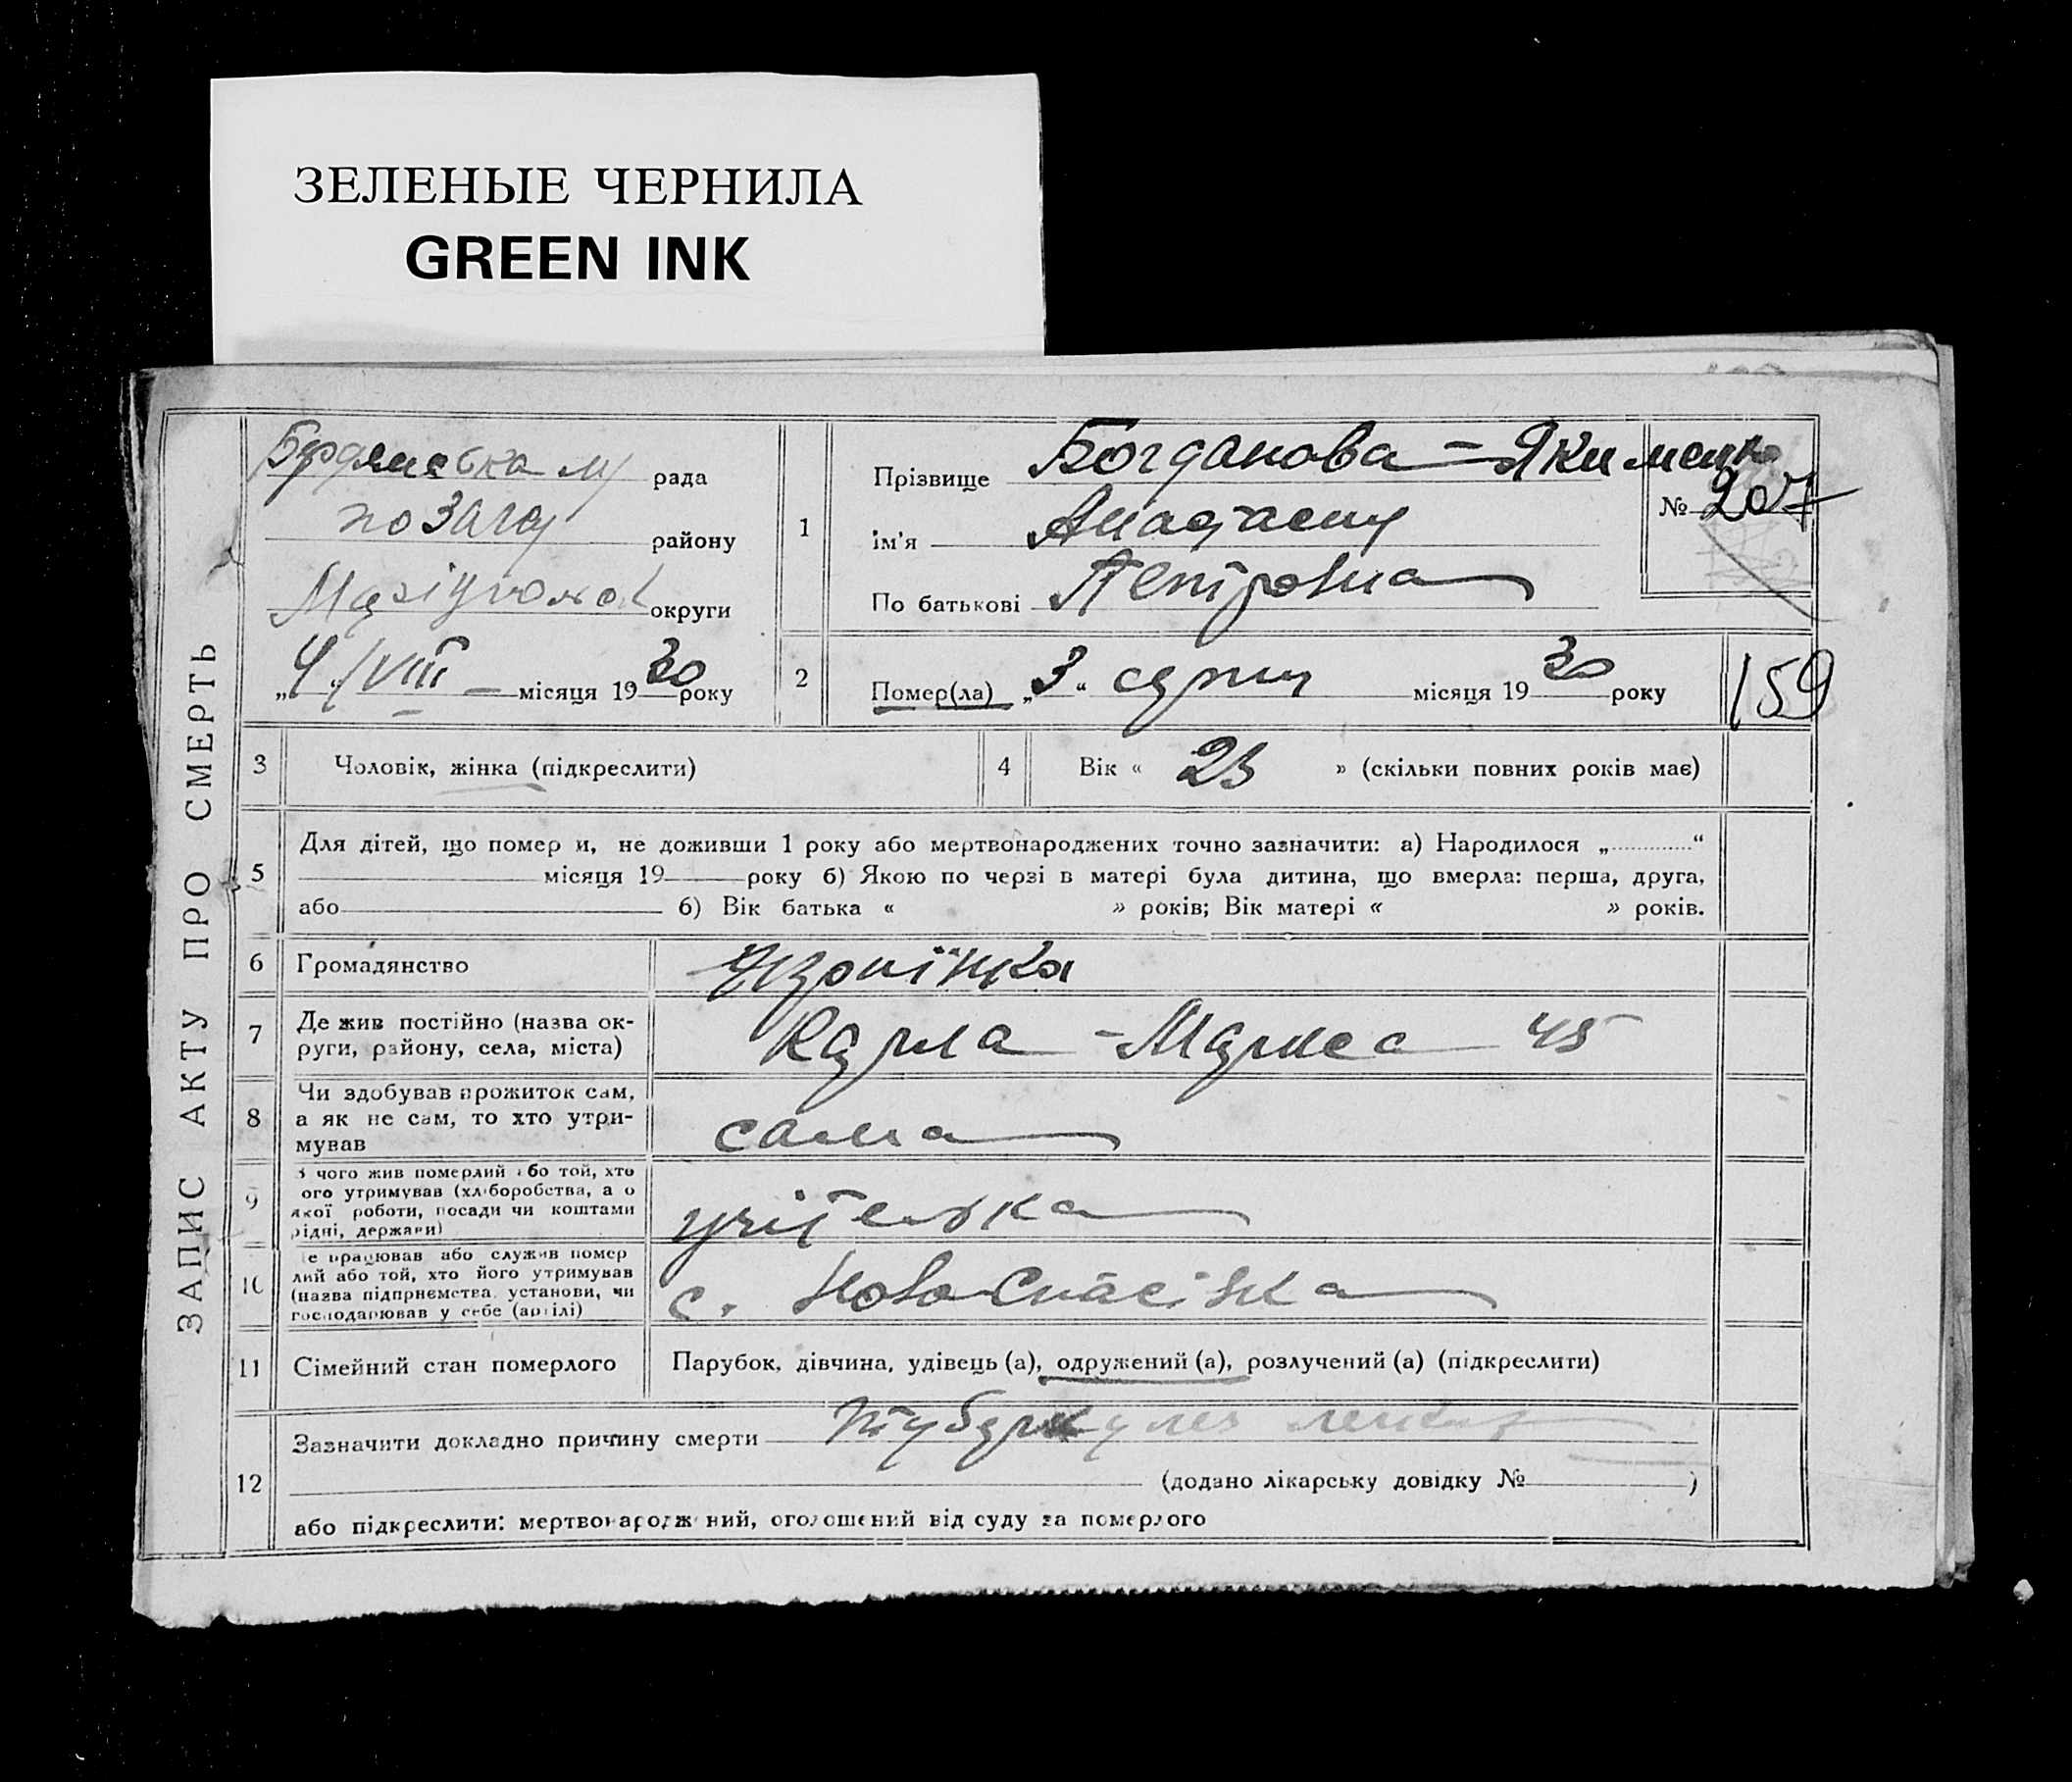 ЗЕЛЕНЫЕ ЧЕРНИЛА
GREEN INK
ЗАПИС АКТУ ПРО СМЕРТЬ
Бердянська м/ рада
району
округи
„4“/VIII місяця 1930 року
1
Прізвище Богданова - Якименко
ім'я
По батькові Петровна
№ 207
2
Помер(ла) „3“ серпн місяця 1930 року
159
3
Чоловік, жінка (підкреслити)
4
Вік « 23 » (скільки повних років має)
5
Для дітей, що помер и, не доживши 1 року або мертвонароджених точно зазначити: а) Народилося „ “
місяця 19 року б) Якою по черзі в матері була дитина, що вмерла: перша, друга,
або б) Вік батька « » років; Вік матері « » років.
6
Громадянство
7
Де жив постійно (назва ок-
руги, району, села, міста)
Карла - Маркса 45
8
Чи здобував прожиток сам,
а як не сам, то хто утри-
мував
сама
9
З чого жив померлий або той, хто
ого утримував (хліборобства, а о
якої роботи, посади чи коштами
рідні, держави)
учітелька
10
е працював або служив помер
лий або той, хто його утримував
(назва підприємства, установи, чи
господарював у себе (артілі)
с. Ново Спасівка
11
Сімейний стан померлого
Парубок, дівчина, удівець (а), одружений (а), розлучений (а) (підкреслити)
12
Зазначити докладно причину смерти туберкулез
(додано лікарську довідку № )
або підкреслити: мертвонароджений, оголошений від суду за померлого